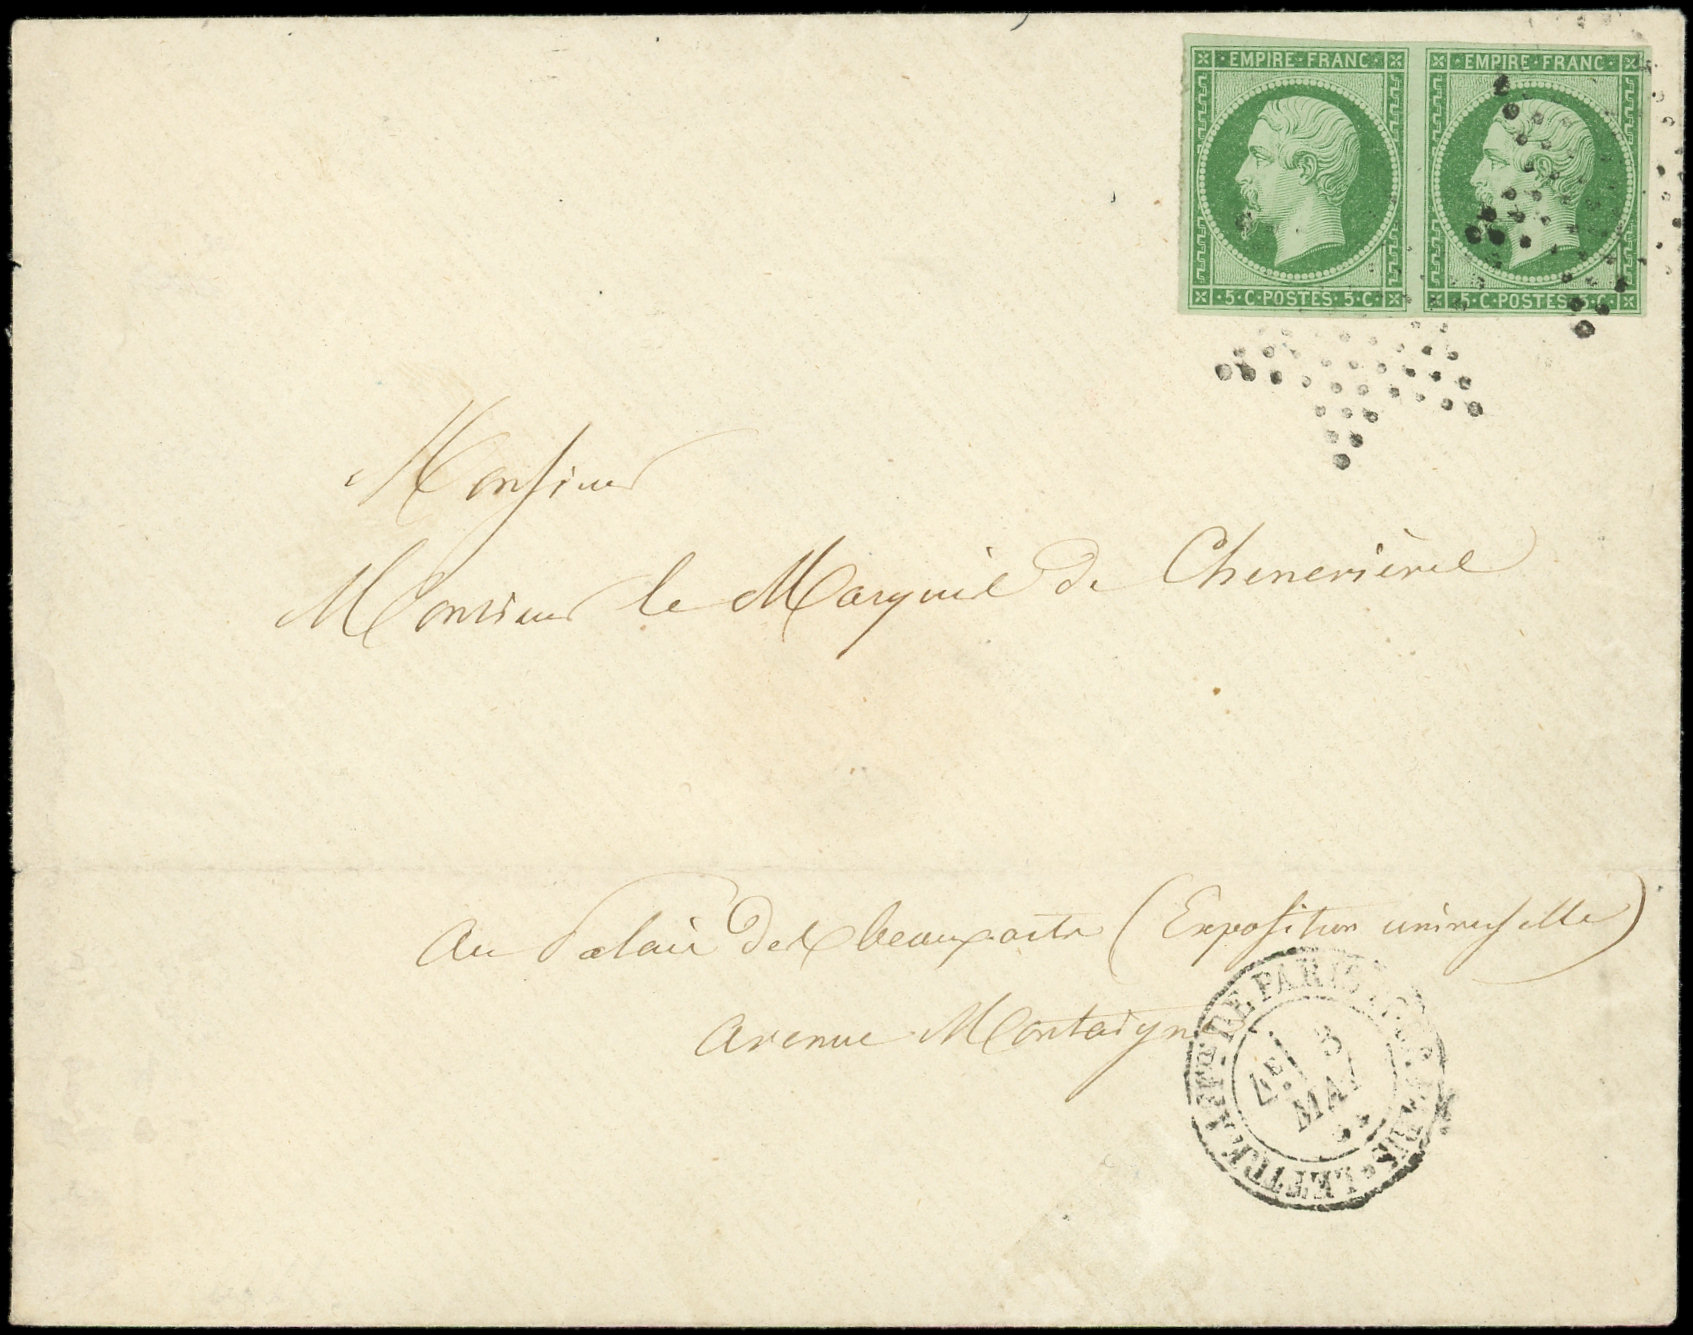 EMPIRE · FRANC · EMPIRE · FRANC ·
· 5 · C · POSTES · 5 · C · · 5 · C · POSTES · 5 · C ·
Monsieur
Monsieur le Marquis de Chenevières
Au Palais des beaux arts (Exposition universelle)
Avenue Montaigne
DE PARIS
3
7E
MAI